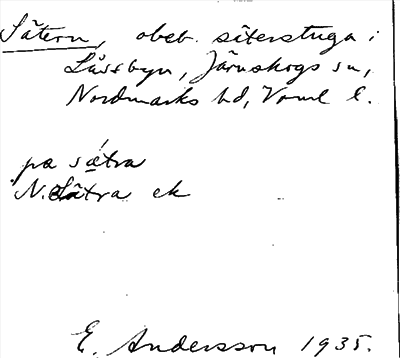 Sätern, obeb. säterstuga i
Låssbyn, Järnskogs sn,
Nordmarks hd, Värml l.
pa sætra
N. Sätra ek
E. Andersson 1935.